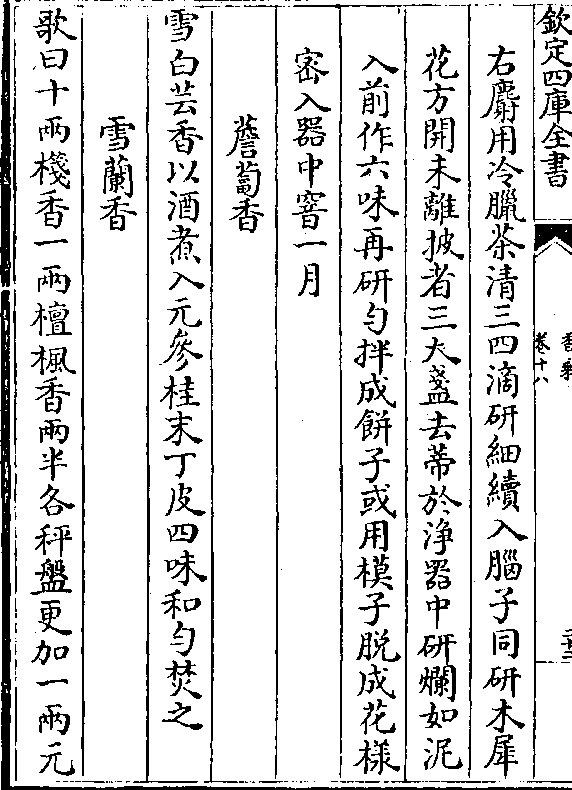 欽定四庫全書
香乘
卷十八
右麝用冷臘茶清三四滴研細續入腦子同研木犀
花方開未離披者三大盞去蒂於浄器中研爛如泥
入前作六味再研勻拌成餅子或用模子脱成花樣
密入器中窨一月
薝蔔香
雪白芸香以酒煮入元參桂末丁皮四味和勻焚之
雪蘭香
歌曰十兩棧香一兩檀楓香兩半各秤盤更加一兩元